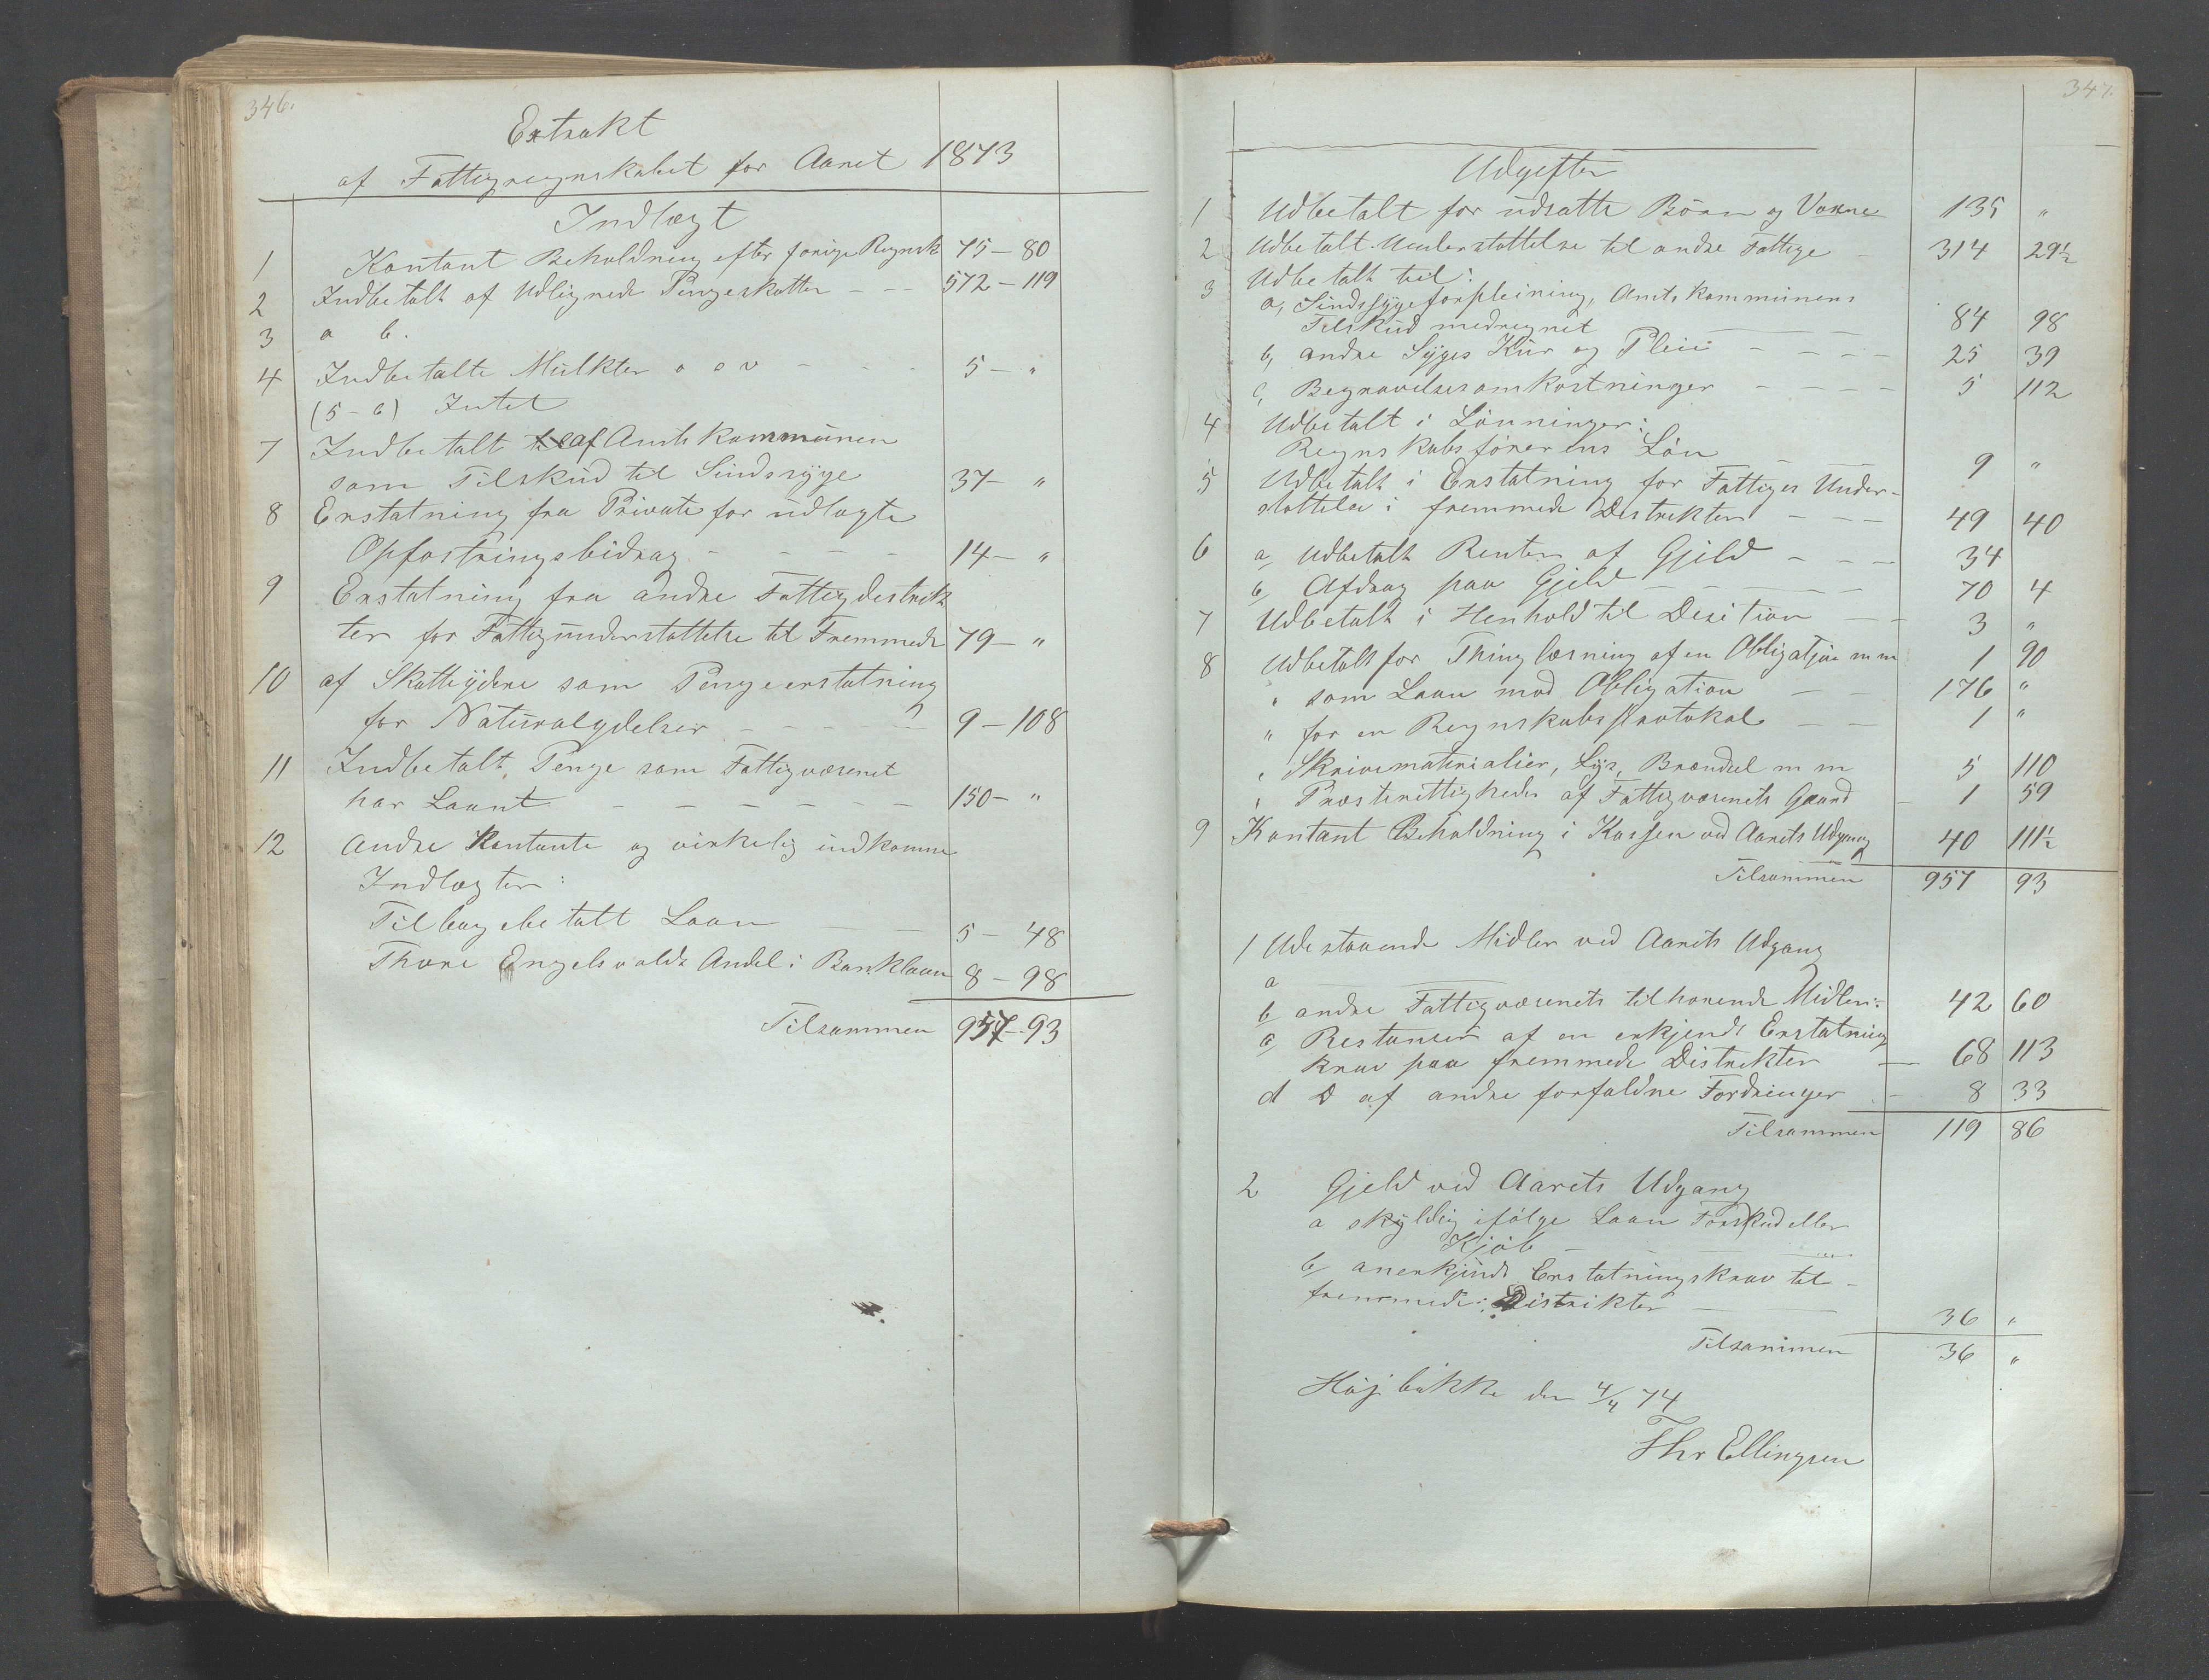 346.
Extrakt
af Fattigregnskabet for Aaret 1873
Indtægt
1 Kontant Beholdning efter forige Regnsk 75 – 80
2 Indbetalt af Udlignede Pengeskatter – – – 572 – 119
3 a b.
4 Indbetalte Mulkter o s v – – – 5 – "
(5-6) Intet
7 Indbetalt af Amtskommunen
som Tilskud til Sindssyge 37 – "
8 Erstatning fra Private for udlagte
Opfostringsbidrag – – – – 14 – "
9 Erstatning fra andre Fattigdestrikk
ter for Fattigunderstøttelse til Fremmede 79 – "
10 af Skatteydere som Pengeerstatning
for Naturalydelser – – – – 9 – 108
11 Indbetalt Penge som Fattigvæsenet
har Laant – – – – – – 150 – "
12 Andre Kontante og virkelig indkomne
Indtægter:
Tilbagebetalt Laan 5 – 48
Thore Engelsvolds Andel i Banklaan 8 – 98
Tilsammen 957 – 93
347.
Udgifter
1 Udbetalt for udsatte Börn og Voxne 135 "
2 Udbetalt Understøttelse til andre Fattige – 314 29½
3 Udbetalt til:
a, Sindssygeforpleining, Amtskommunens
Tilskud medregnet – – – 84 98
b, andre Syges Kur og Pleie – – – – 25 39
c, Begravelsesomkostninger – – – – 5 112
4 Udbetalt i Lönninger:
Regnskabsförerens Lön – – 9 "
5 Udbetalt i Erstatning for Fattiges Under-
støttelse i fremmede Destrikter – – – 49 40
6 a, Udbetalt Renter af Gjeld – – – 34
b, Afdrag paa Gjeld – – – – 70 4
7 Udbetalt i Henhold til Desition – – 3 "
8 Udbetalt for Thinglæsning af en Obligatjon m m 1 90
" som Laan mod Obligation – – 176 "
" for en Regnskabsprotokol – – 1 "
" Skrivematerialier, Lys, Brændsel m m 5 110
" Præsterettigheder af Fattigvæsenets Gaard – 1 59
9 Kontant Beholdning i Kassen ved Aarets Udgang 40 111½
Tilsammen 957 93
1 Udestaaende Midler ved Aarets Udgang
a
b andre Fattigvæsenets tilhörende Midler: 42 60
c, Restanser af en erkjendt Erstatning
krav paa fremmede Distrikter – 68 113
d D af andre forfaldne Fordringer – 8 33
Tilsammen 119 86
2 Gjeld ved Aarets Udgang
a skyldig ifölge Laan Forskud eller
Kjöb – – –
b, anerkjendt Erstatningskrav til –
fremmede Distrikter – – 36 "
Tilsammen 36 "
den 4/4 74
Thr Ellingsen